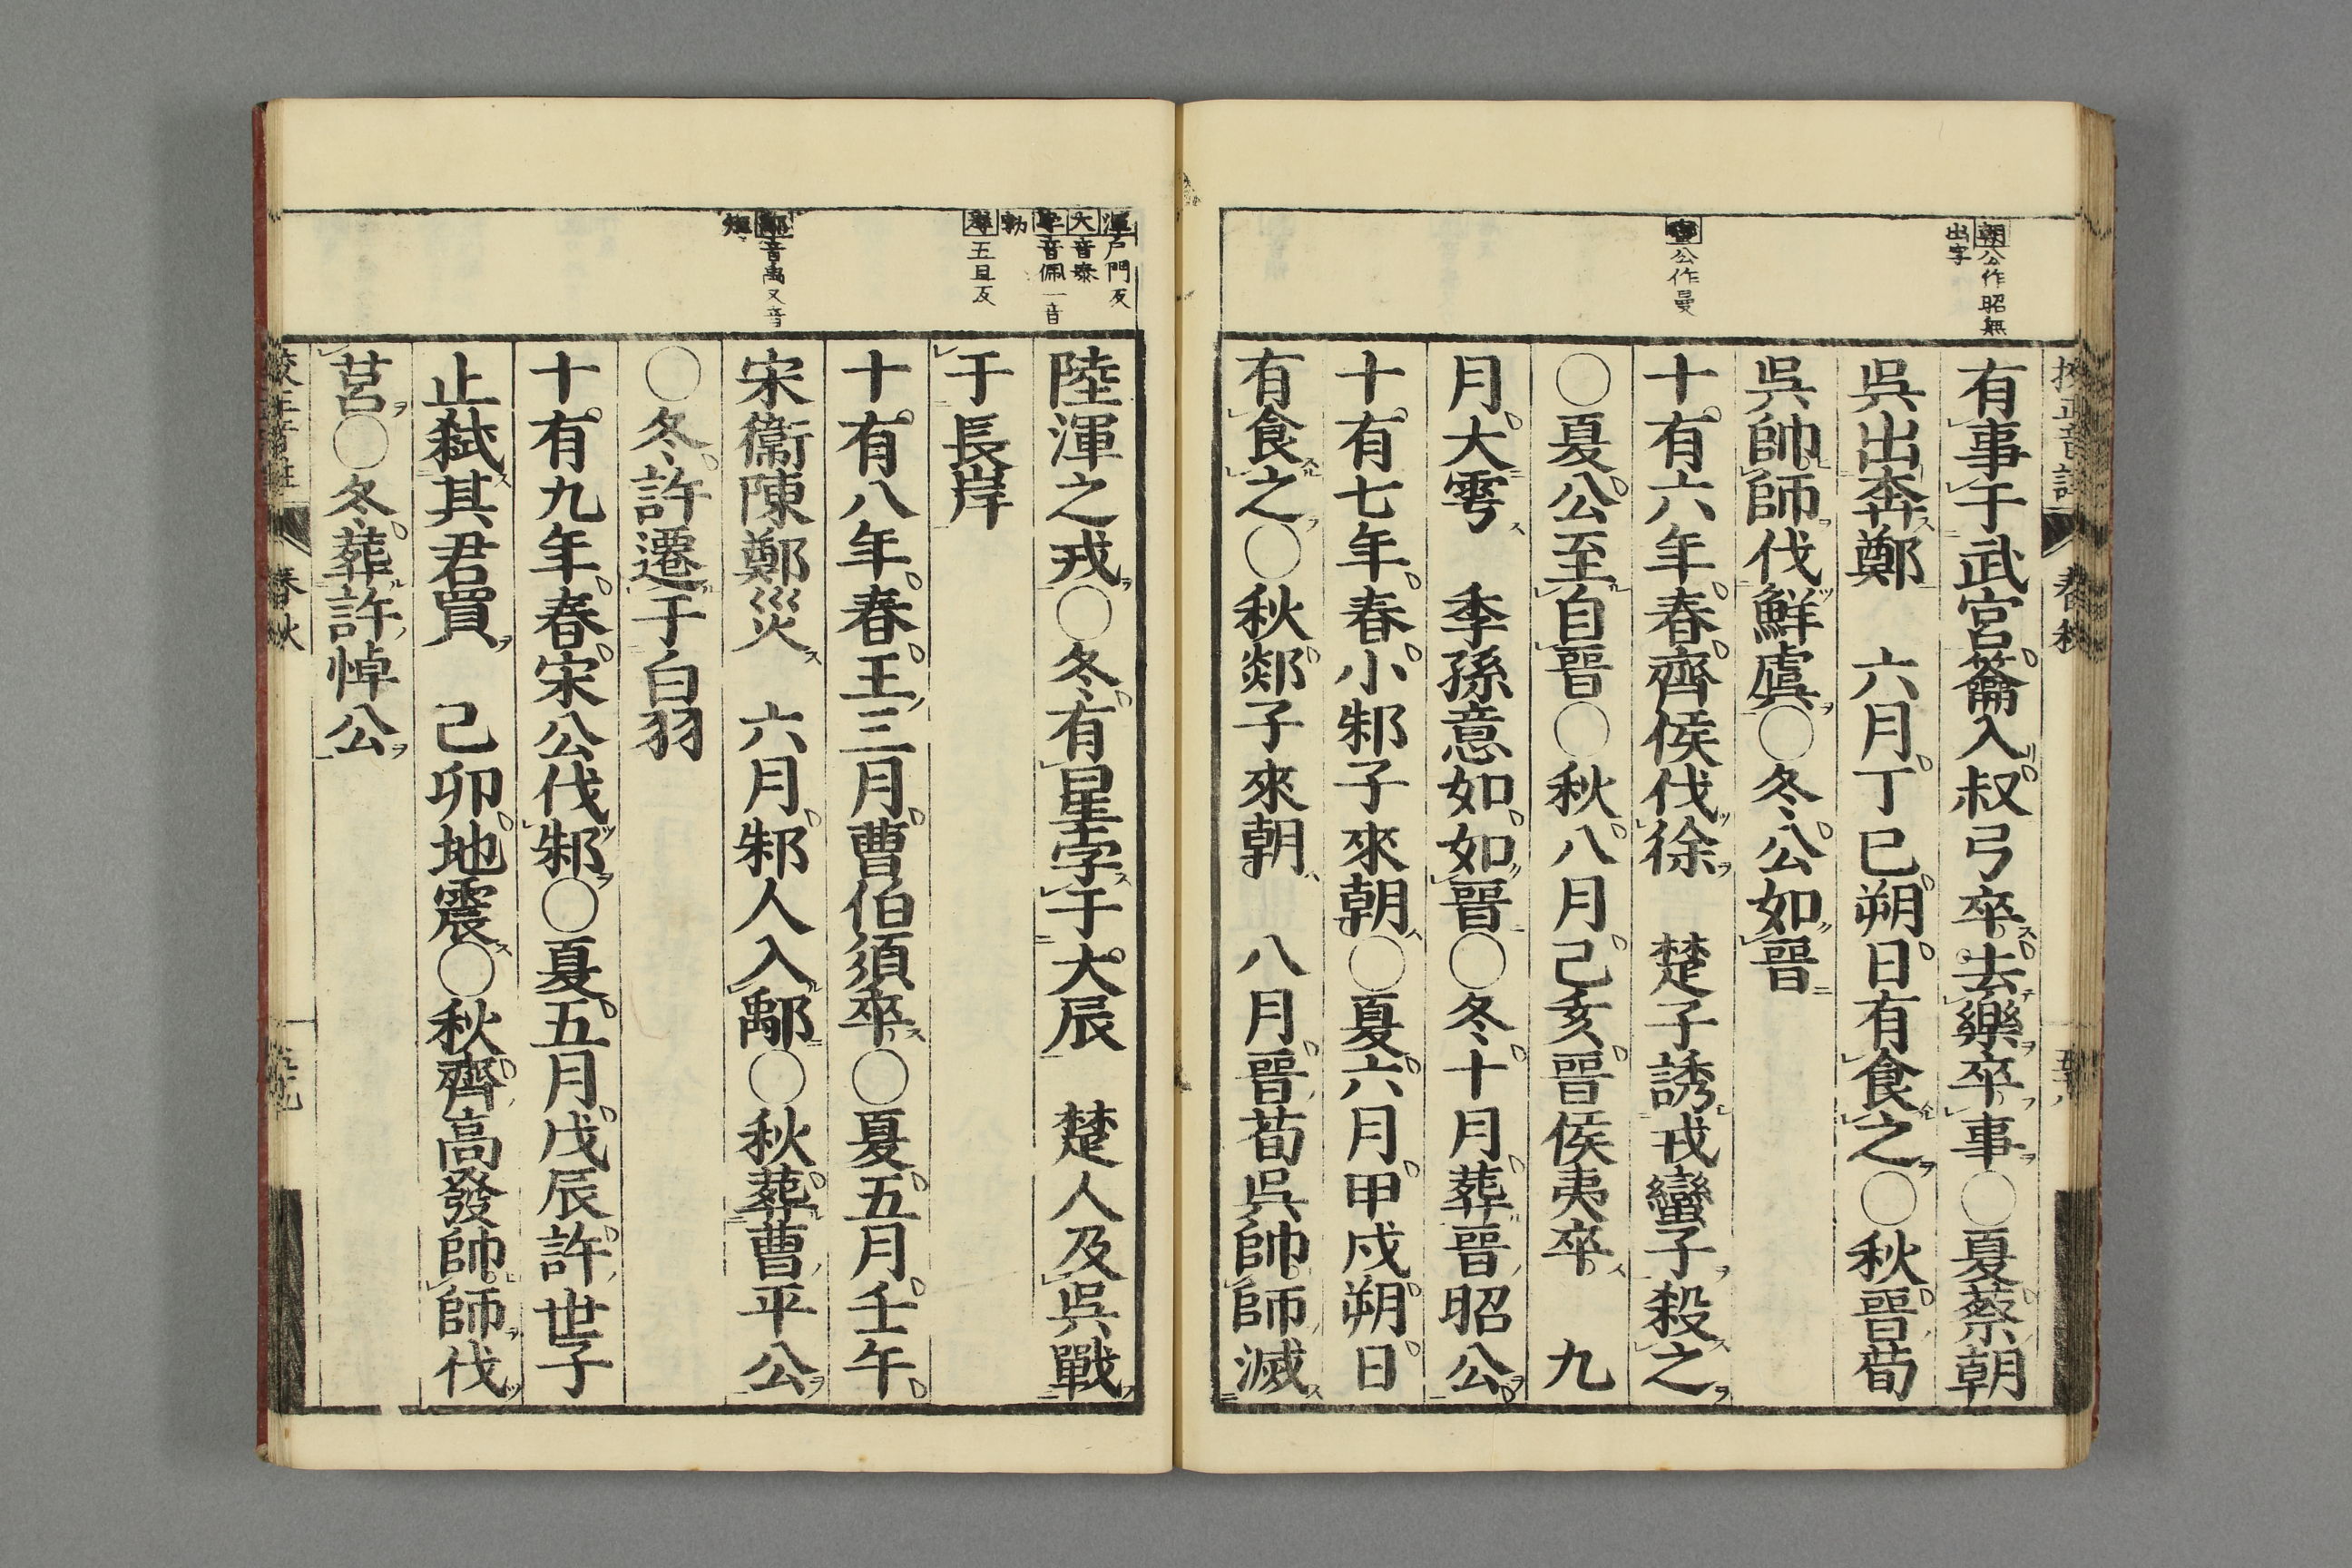 朝公作昭無
出字
公作曼
有事于武宮籥入叔弓卒去樂卒事○夏蔡朝
吳出奔鄭　六月丁巳朔日有食之○秋晉荀
吳帥師伐鮮虞○冬公如晉
十有六年春齊侯伐徐　楚子誘戎蠻子殺之
○夏公至自晉○秋八月己亥晉侯夷卒　九
月大雩　季孫意如如晉○冬十月葬晉昭公
十有七年春小邾子來朝○夏六月甲戌朔日
有食之○秋郯子來朝　八月晉荀吳帥師滅
渾戶門反
大音泰
孛音佩一音
勃
五旦反
音禹又音
陸渾之戎○冬有星孛于大辰　楚人及吳戰
于長岸
十有八年春王三月曹伯須卒○夏五月壬午
宋衞陳鄭災　六月邾人入鄅○秋葬曹平公
○冬許遷于白羽
十有九年春宋公伐邾○夏五月戊辰許世子
止弑其君買　己卯地震○秋齊高發帥師伐
莒○冬葬許悼公
春秋